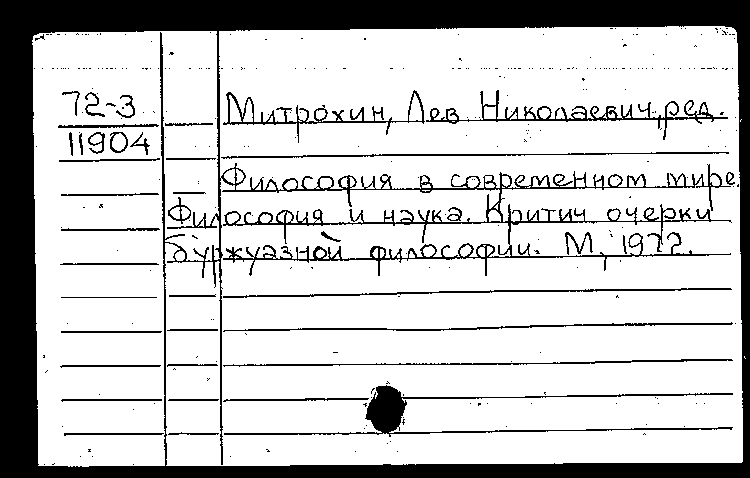 72-3 Митрохин, Лев Николаевич, ред.
11904
Философия в современном мире.
Философия и наука. Критич очерки
буржуазной философии. М., 1972.